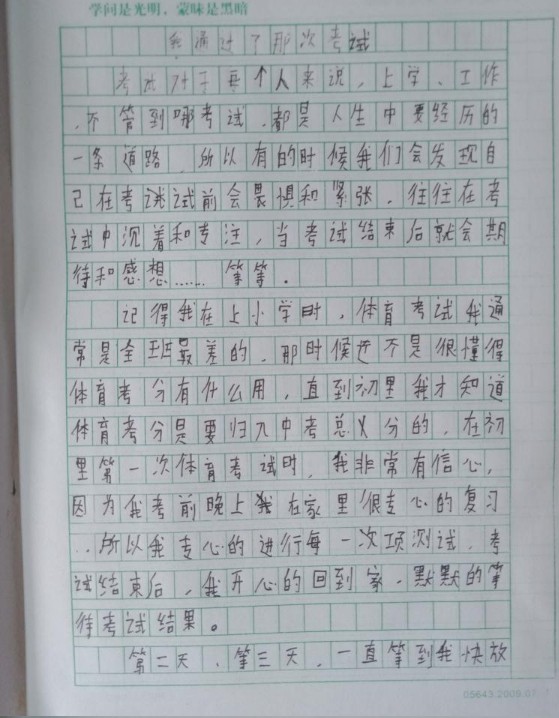 学问是光明，蒙昧是黑暗
我通过了那次考试
考试对于每个人来说，上学、工作
，不管到哪考试，都是人生中要经历的
一条道路，所以有的时候我们会发现自
己在考试前会畏惧和紧张，往往在考
试中沉着和专注，当考试结束后就会期
待和感想……等等。
记得我在上小学时，体育考试我通
常是全班最差的，那时候也不是很懂得
体育考分有什么用，直到初里我才知道
体育考分是要归入中考总分的，在初
里第一次体育考试时，我非常有信心，
因为我考前晚上我在家里很专心的复习
，所以我专心的进行每一次项测试，考
试结束后，我开心的回到家，默默的等
待考试结果。
第二天，第三天，一直等到我快放
05643.2009.07